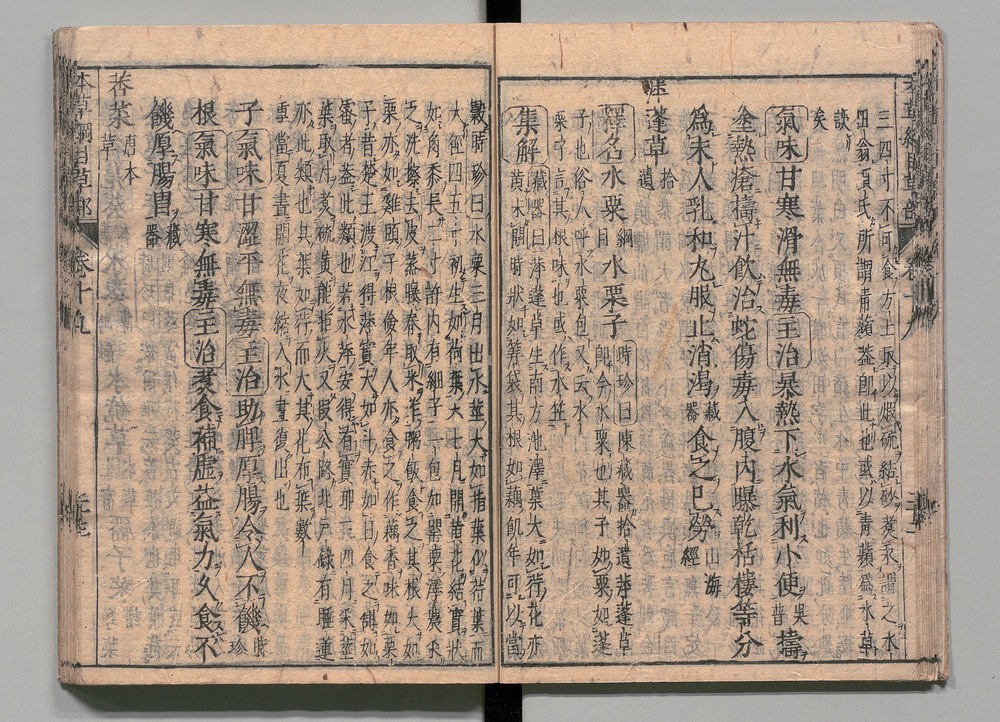 三四寸不可食方士取以煆硫結砂煑汞謂之水
田翁項氏所謂青蘋蓋即此也或以青蘋為水草
誤矣
氣味甘寒滑無毒主治暴熱下水氣利小便吳普擣
金熱瘡擣汁飲治蛇傷毒入腹內曝乾栝樓等分
為末人乳和丸服止消渴藏器食之已勞山海經
萍蓬草拾遺
釋名水粟綱目水粟子時珍曰陳藏器拾遺萍蓬草
即今水粟也其子如粟如蓬
子也俗人呼水粟包又云水
粟子言其根味也或作水笠
集解藏器曰萍蓬草生南方池澤葉大如荇花亦
黃未開時狀如筭袋其根如藕飢年可以當
穀時珍曰水粟三月出水莖大如指葉似荇葉而
大徑四五寸初生如荷葉六七月開黃花結實狀
如角黍長二寸許內有細子一包如罌粟澤農采
之洗擦去皮蒸曝舂取米作粥飯食之其根大如
栗亦如雞頭子根儉年人亦食之作藕香味如栗
子昔楚王渡江得萍實大如斗赤如日食之甜如
蜜者蓋此類也若水萍安得有實耶三四月采莖
葉取汁煑硫黃能拒火又段公路北戶錄有睡蓮
亦此類也其葉如荇而大其花布葉數
重當夏晝開花夜縮入水晝復出也
子氣味甘澀平無毒主治助脾厚腸令人不饑時珍
根氣味甘寒無毒主治煑食補虛益氣力久食不
饑厚腸胃藏器
荇菜唐本草
本草綱目草部 卷十九